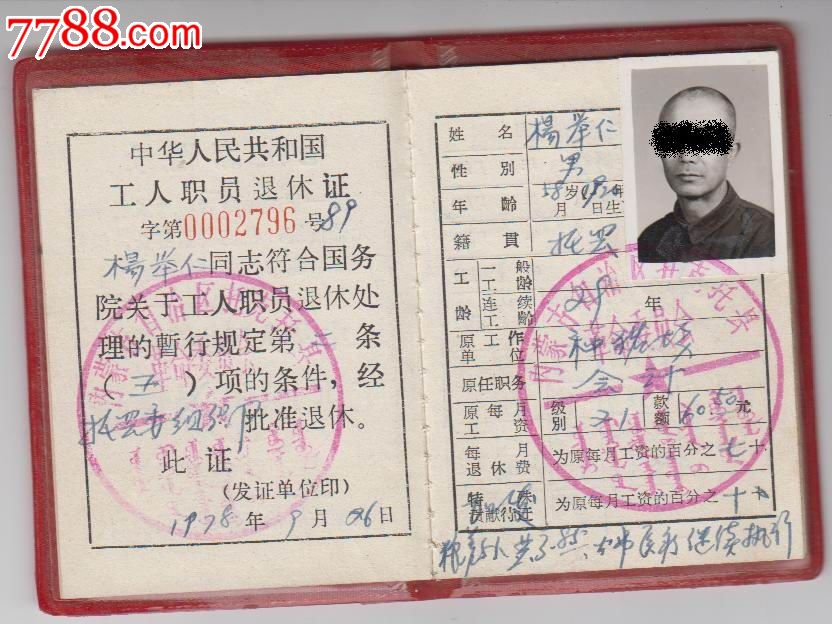 7788.com
中华人民共和国
工人职员退休证
字第0002796号89
楊举仁同志符合国务
院关于工人职员退休处
理的暫行规定第二条
（五）项的条件，经
托县委组织部批准退休。
此证
（发证单位印）
1978年9月26日
姓名 楊举仁
性別 男
年齡 58岁1920年
月 日生
籍貫 托县
工龄 一般工龄
连续工龄 29年
原工作单位 种猪场
原任职务 会计
原每月工资 级別 21 款额 60.50元
每月退休费 为原每月工资的百分之七十
特殊贡献待迂 为原每月工资的百分之十
继续执行